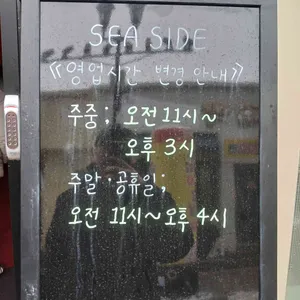 SEA SIDE
《영업시간 변경 안내》
주중; 오전 11시~
오후 3시
주말·공휴일;
오전 11시~오후 4시